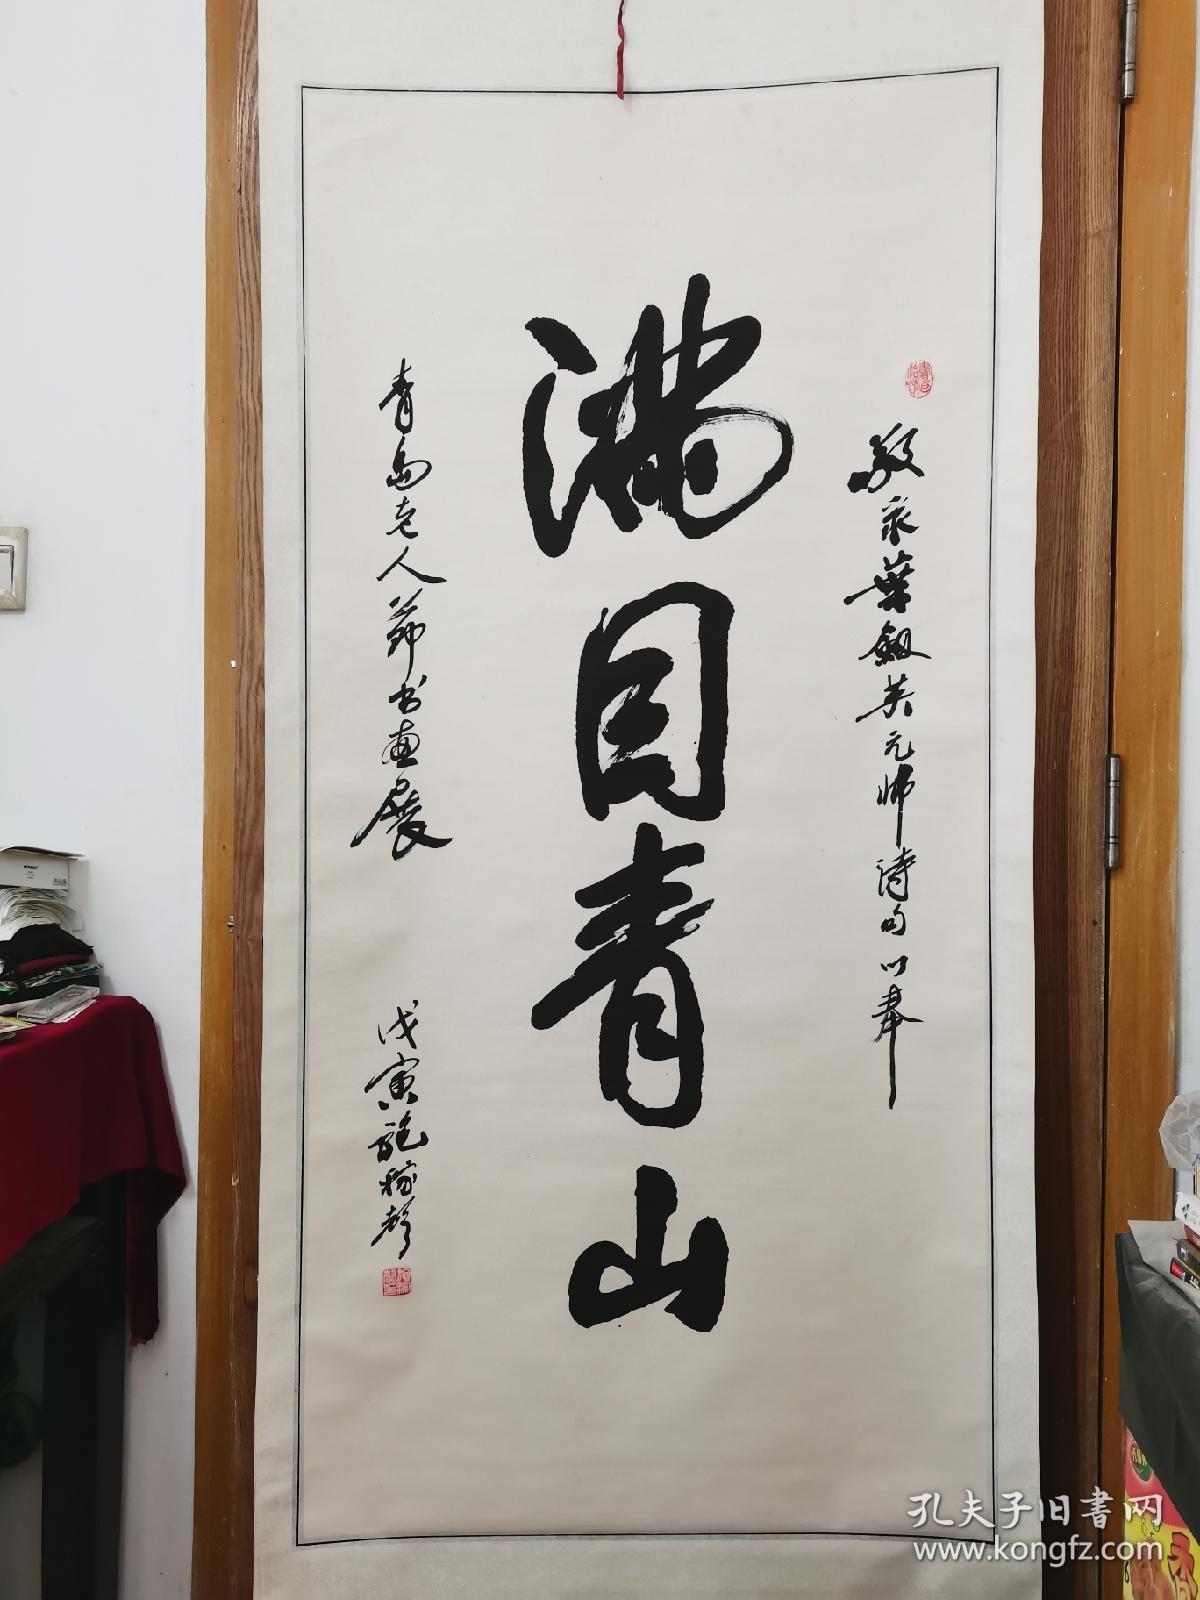 敬录葉劍英元帅
诗句以奉
满目青山
青岛老人节书画展
戊寅
孔夫子旧書网
www.kongfz.com